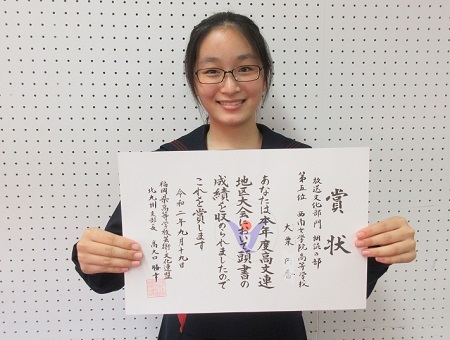 賞状
放送文化部門 朗読の部
第五位 西南女学院高等学校
大栗
あなたは本年度高文連
地区大会において頭書の
成績を収められましたので
これを賞します
令和二年九月十九日
福岡県高等学校芸術・文化連盟
北九州支部長